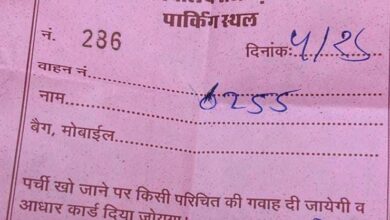 पार्किंग स्थल
नं. 286 दिनांक: 5/25
वाहन नं.
नाम 0255
बैग, मोबाईल
पर्ची खो जाने पर किसी परिचित की गवाह दी जायेगी व
आधार कार्ड दिया जोयगा